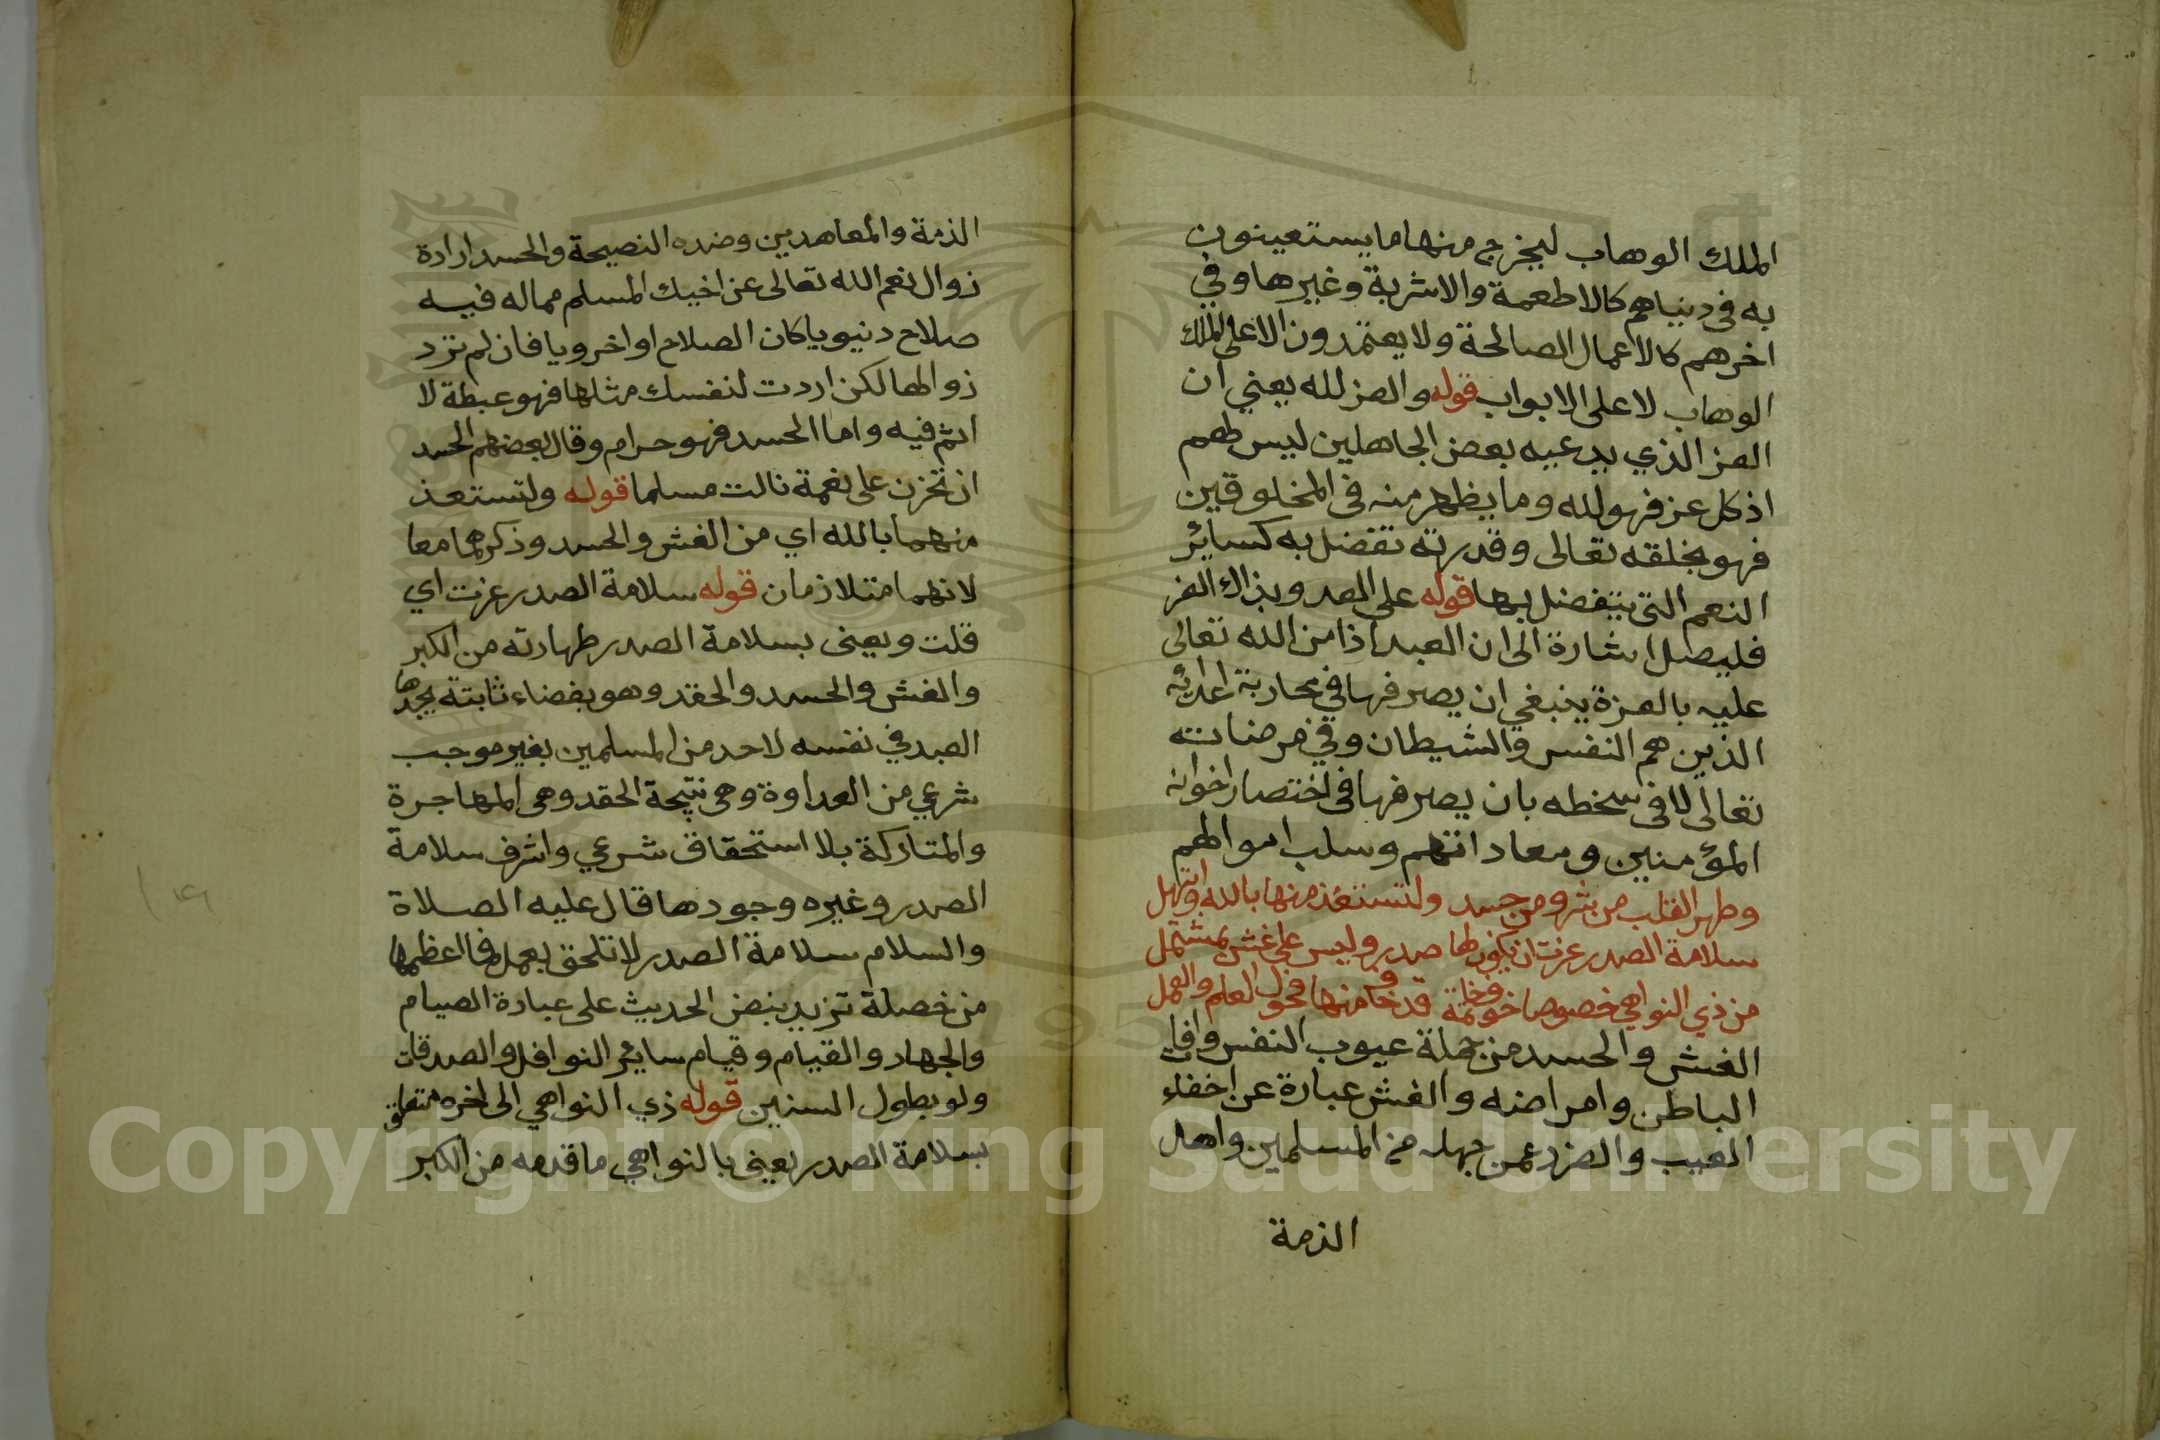 الملك الوهاب ليخرج منها ما يستعينون
به في دنياهم كالاطعمة والاشربة وغيرها وفي
اخرهم كالاعمال الصالحة ولا يعتمدون الا على الملك
الوهاب لا على الابواب قوله والعز لله يعني ان
العز الذي يدعيه بعض الجاهلين ليس لهم
اذ كل عز فهو لله وما يظهر منه في المخلوقين
فهو بخلقه تعالى وقدرته تفضل به كسائر
النعم التي يتفضل بها قوله على العدو بذاك العز
فليصل اشارة الى ان العبد اذا من الله تعالى
عليه بالعزة ينبغي ان يصرفها في محاربة اعدائه
الذين هم النفس والشيطان وفي مرضاته
تعالى لا في سخطه بان يصرفها في اختصار اخوانه
المؤمنين ومعاداتهم وسلب اموالهم
وطهر القلب من شر ومن حسد ولتستعذ منها بالله وابتهل
سلامة الصدر عزت ان يكون لها صدر وليس على غش بمشتمل
من ذي النواهي خصوصا خوف خاتمة قد خاف منها فحول العلم والعمل
الغش والحسد من جملة عيوب النفس وافات
الباطن وامراضه والغش عبارة عن اخفاء
العيب والضرد عمن جهله من المسلمين واهل
الذمة
الذمة والمعاهدين وضده النصيحة والحسد ارادة
زوال نعم الله تعالى عن اخيك المسلم مما له فيه
صلاح دنيويا كان الصلاح او اخرويا فان لم ترد
زوالها لكن اردت لنفسك مثلها فهو غبطة لا
اثم فيه واما الحسد فهو حرام وقال بعضهم الحسد
ان تحزن على نعمة نالت مسلما قوله ولتستعذ
منهما بالله اي من الغش والحسد وذكرهما معا
لانهما متلازمان قوله سلامة الصدر عزت اي
قلت ويعنى بسلامة الصدر طهارته من الكبر
والغش والحسد والحقد وهو بغضاء ثابتة يجدها
العبد في نفسه لاحد من المسلمين بغير موجب
شرعي من العداوة وهي نتيجة الحقد وهي المهاجرة
والمتاركة بلا استحقاق شرعي واشرف سلامة
الصدر وغيره وجودها قال عليه الصلاة
والسلام سلامة الصدر لا تلحق بعمل فما اعظمها
من خصلة تزيد بنص الحديث على عبادة الصيام
والجهاد والقيام وقيام سائر النوافل والصدقات
ولو بطول السنين قوله ذي النواهي الى اخره متعلق
بسلامة الصدر يعنى بالنواهي ما قدمه من الكبر
Copyright © King Saud University
195